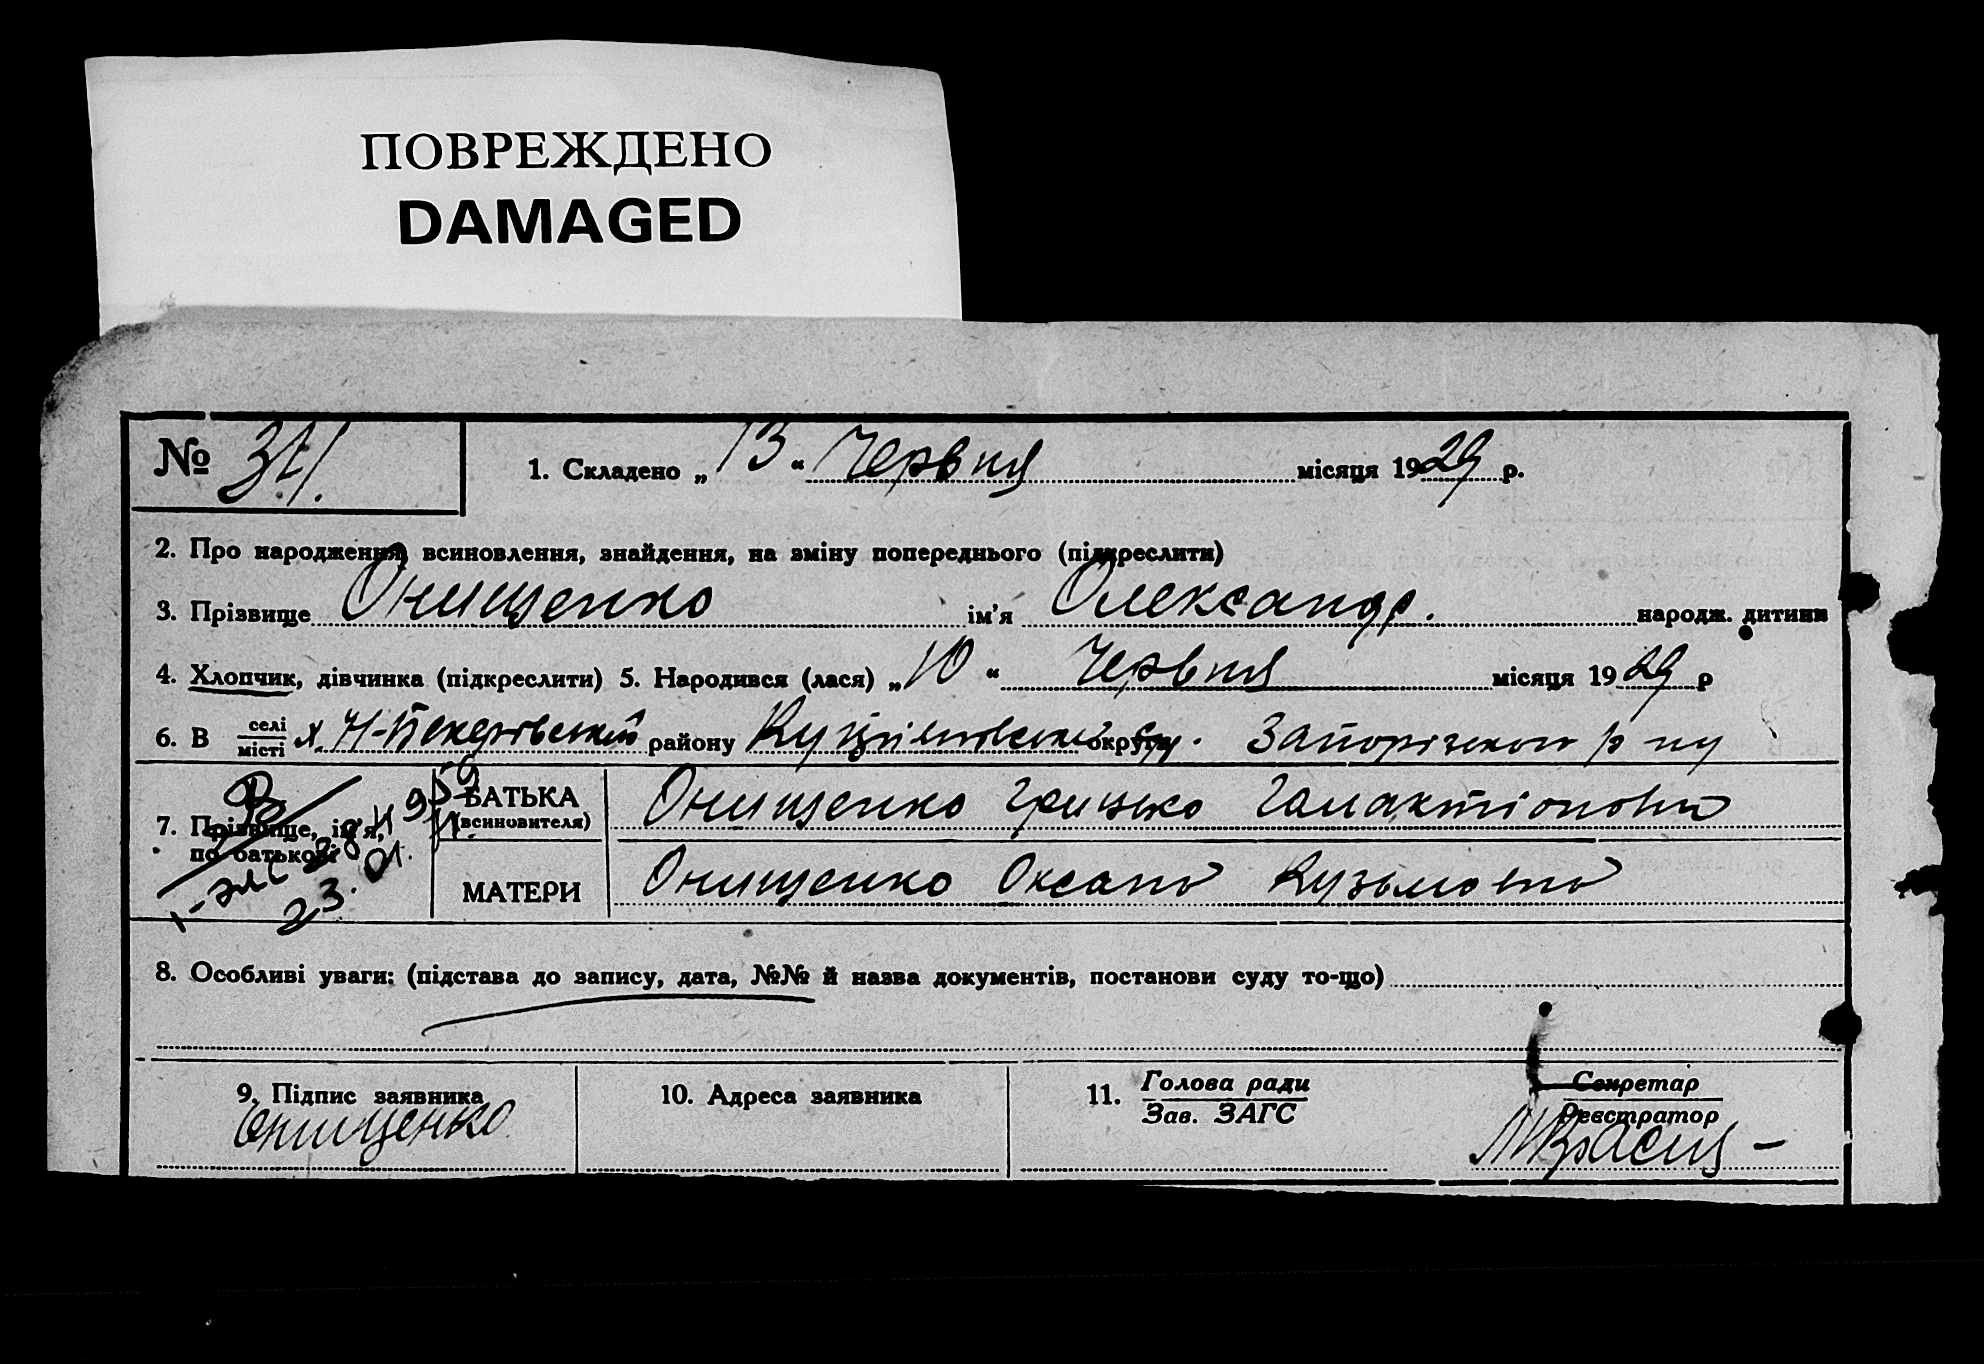 ПОВРЕЖДЕНО
DAMAGED
№ 31.
1. Складено „ 13 “ Червня місяця 1929 р.
2. Про народження, всиновлення, знайдення, на зміну попереднього (підкреслити)
3. Прізвище Онищенко ім'я Олександр. народж. дитини
4. Хлопчик, дівчинка (підкреслити) 5. Народився (лася) „ 10 “ Червня місяця 1929 р
6. В селі місті х. району округи Запорізького р-ну
7. Прізвище, ім'я, по батькові
БАТЬКА (всиновителя) Онищенко Грицько Галактіонови
МАТЕРИ Онищенко Оксана Кузьмовна
23. 01.
8. Особливі уваги: (підстава до запису, дата, №№ й назва документів, постанови суду то-що)
9. Підпис заявника 10. Адреса заявника 11. Голова ради Секретар
Зав. ЗАГС Реєстратор
Онищенко